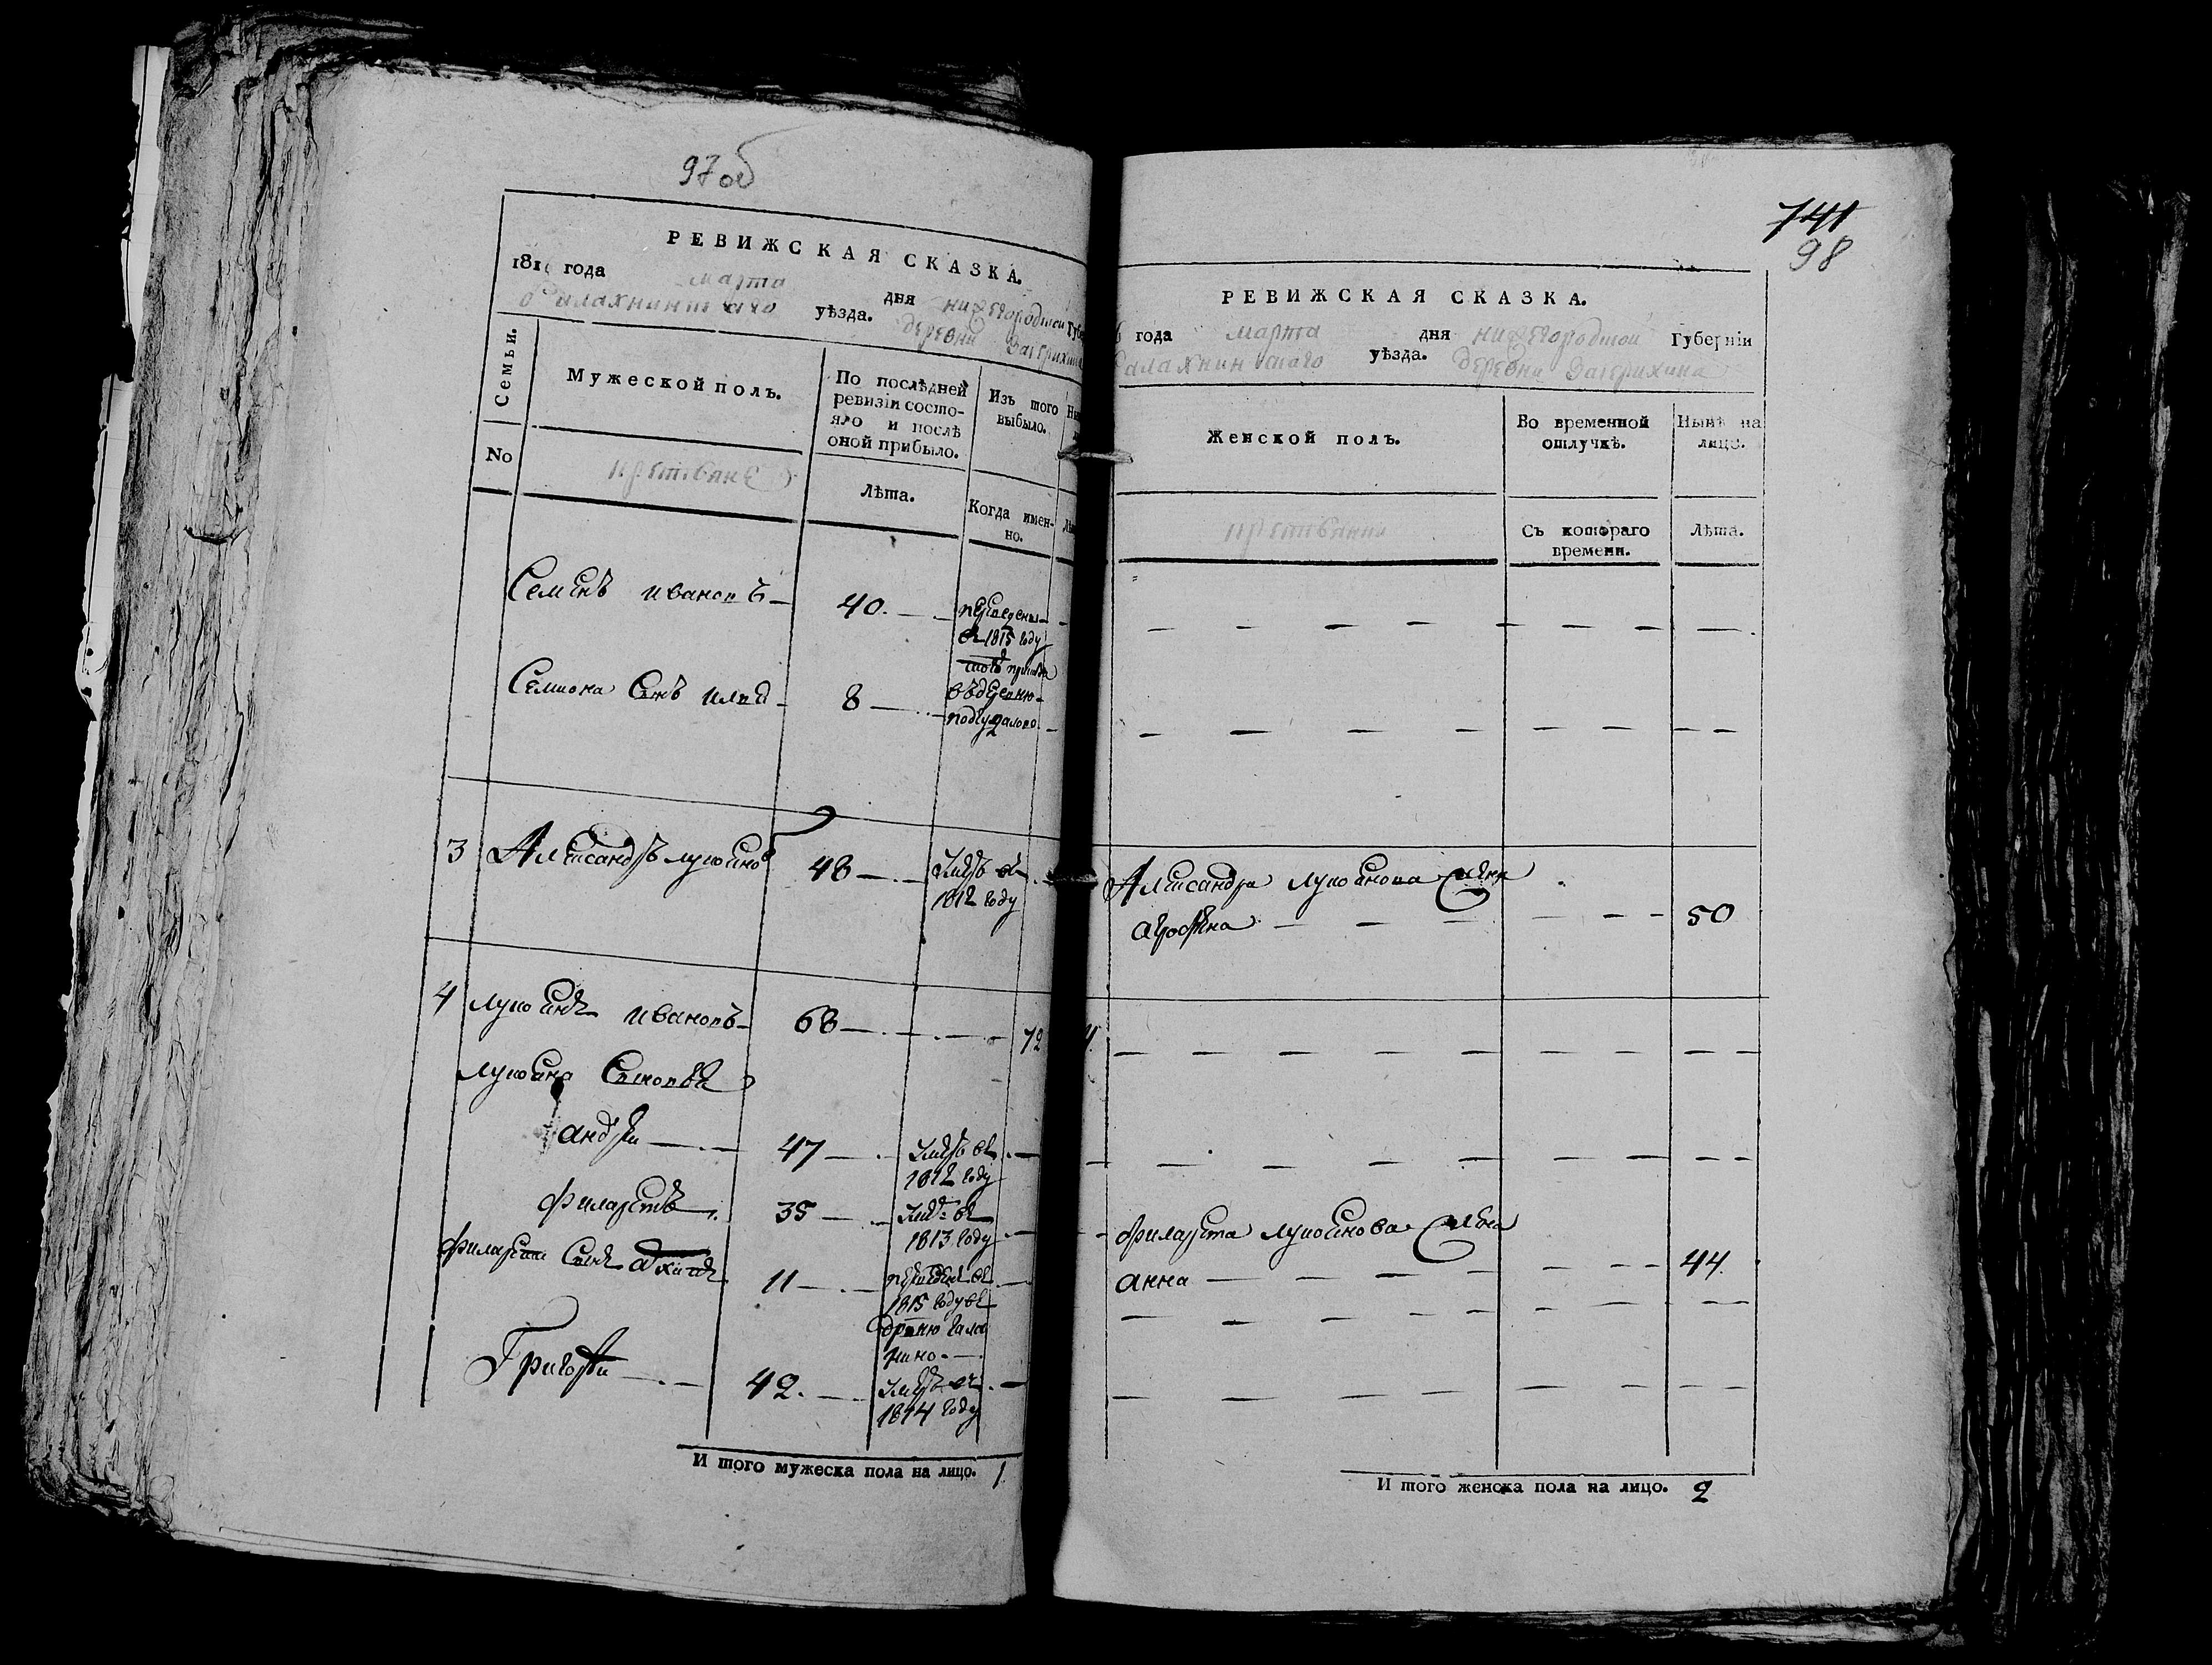 97об
РЕВИЖСКАЯ СКАЗКА.
181 года марта дня нижегородской Губе
Балахнинскаго уѣзда. деревни
Семьи.
No
Мужеской полъ.
По послѣдней
ревизіи состо-
яло и послѣ
оной прибыло.
Лѣта.
Изъ того
выбыло.
Когда имен-
но.
крестьяне
Семенъ Ивановъ 40.
переведены
въ 1815 году
Семиона сынъ 8
въ деревню
3 Александръ лукоянов 48 умеръ въ
1812 году
4 лукоянъ Ивановъ 68 72
лукояна сыновья
андрей 47 умеръ въ
1812 году
филаретъ 35 въ
1813 году
филарета сынъ 11 переведенъ въ
1815 году въ
Григорей 42. умеръ въ
1814 году
И того мужеска пола на лицо. 1
741
98
РЕВИЖСКАЯ СКАЗКА.
6 года марта дня нижегородской Губерніи
Балахнинскаго уѣзда. деревни
Женской полъ.
Во временной
отлучкѣ.
Съ котораго
времени.
Нынѣ на
лицо.
Лѣта.
4
Александра лукоянова жена
50
филарета лукоянова жена
анна 44.
И того женска пола на лицо. 2